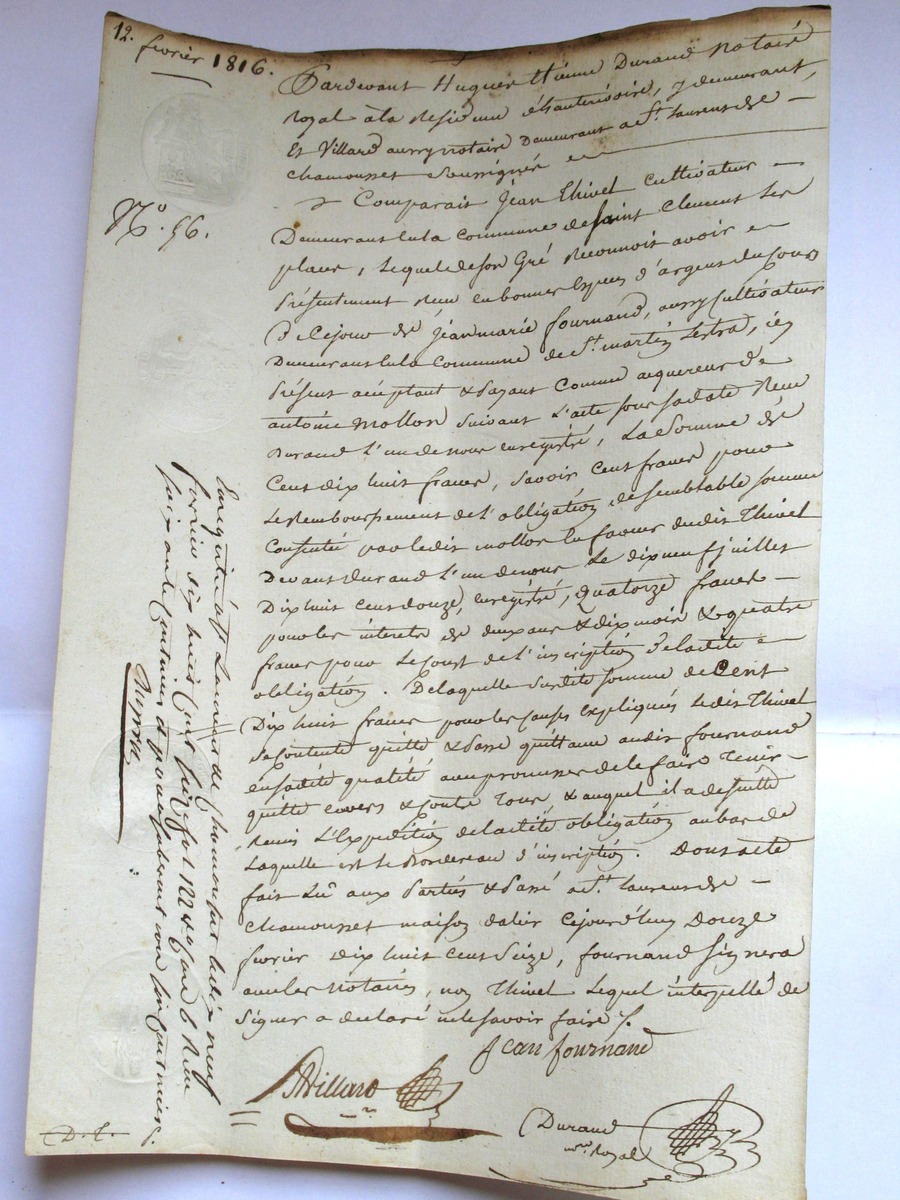 12. fevrier 1816.
Pardevant Hugues Etienne Durand Notaire
Royal à la Residence d'hauterivoire, y demeurant,
Et Villard aussy notaire Demeurant a St. Laurens de
Chamousset soussignés
Comparait Jean Thivel Cultivateur
Demeurant en la Commune de Saint Clement les
places, Lequel de son Gré Reconnoit avoir
Présentement Receu en bonnes Especes d'argens du Cours
De Cejour de Jean marie fournand, aussy Cultivateur
Demeurant en la Commune de St. martin Lestra, icy
Présent acceptant & payant Comme acquereur de
antoine Mollon suivant L'acte sous sa date Receu
Durand l'un de nous enregistré, La Somme de
Cent dix huit francs, savoir Cent francs pour
Le Remboursement de L'obligation de semblable somme
Consentie par ledit mollon en faveur dudit Thivel
Devant Durand l'un de nous Le dix neuf juillet
Dix huit cent douze, enregistré, Quatorze francs
pour les interets de deux ans & dix mois & quatre
francs pour Le Cout de L'inscription de ladite
obligation. De laquelle susdite somme de Cent
Dix huit francs pour les causes Expliqués Ledit Thivel
se Contente quitte & Passe quittance audit fournand
en sadite qualité avec promesse de le faire Tenir
quitte envers & contre Tous, & auquel il a de suitte
Remis L'Expedition de ladite obligation au bas de
Laquelle est le Bordereau d'inscription. Dont acte
fait Lû aux Parties & Passé a St. Laurens de
Chamousset maison dalier Cejourd'huy Douze
fevrier dix huit Cent Seize, fournand Signera
avec les Notaires, non Thivel Lequel interpellé de
Signer a declaré ne le savoir faire /.
Jean fournand
Villard
nre.
Durand
nre. Royal
No. 56.
Enregistré à St Laurent de Chamousset le dix neuf
fevrier dix huit Cent Seize fol 122
D. L.